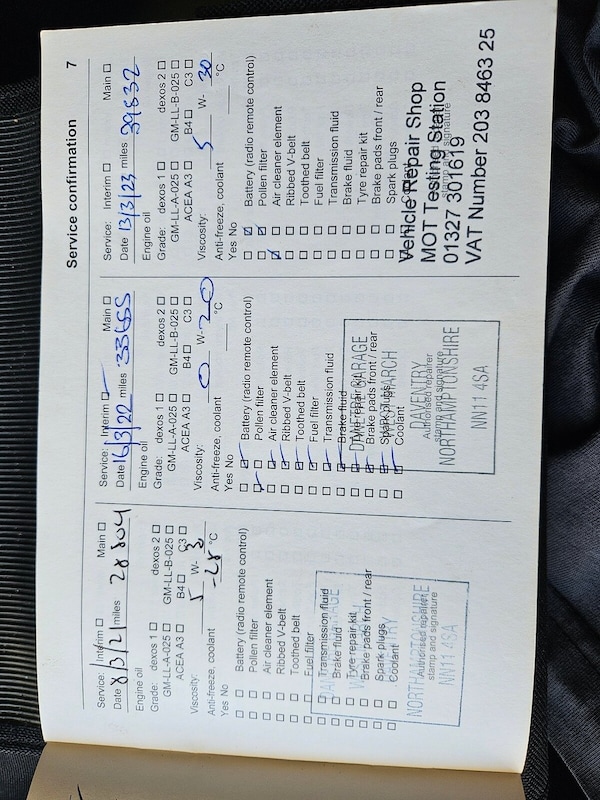 Service confirmation 7
Service: Interim ☐ Main ☐
Date 8/3/21 miles 28804
Engine oil
Grade: dexos 1 ☐ dexos 2 ☐
GM-LL-A-025 ☐ GM-LL-B-025 ☐
ACEA A3 ☐ B4 ☐ C3 ☐
Viscosity: 5 W- 3
Anti-freeze, coolant -28 °C
Yes No
☐ ☐ Battery (radio remote control)
☐ ☐ Pollen filter
☐ ☐ Air cleaner element
☐ ☐ Ribbed V-belt
☐ ☐ Toothed belt
☐ ☐ Fuel filter
☐ ☐ Transmission fluid
☐ ☐ Brake fluid
☐ ☐ Tyre repair kit
☐ ☐ Brake pads front / rear
☐ ☐ Spark plugs
☐ ☐ Coolant
Authorised repairer
stamp and signature
NORTHAMPTONSHIRE
NN11 4SA
Service: Interim ☐ Main ☐
Date 16/3/22 miles 33655
Engine oil
Grade: dexos 1 ☐ dexos 2 ☐
GM-LL-A-025 ☐ GM-LL-B-025 ☐
ACEA A3 ☐ B4 ☐ C3 ☐
Viscosity: 0 W- 20
Anti-freeze, coolant °C
Yes No
☐ ☑ Battery (radio remote control)
☑ ☐ Pollen filter
☐ ☑ Air cleaner element
☐ ☑ Ribbed V-belt
☐ ☑ Toothed belt
☐ ☑ Fuel filter
☐ ☑ Transmission fluid
☐ ☑ Brake fluid
☐ ☑ Tyre repair kit
☐ ☑ Brake pads front / rear
☐ ☑ Spark plugs
☐ ☐ Coolant
GARAGE
MARCH
DAVENTRY
Authorised repairer
stamp and signature
NORTHAMPTONSHIRE
NN11 4SA
Service: Interim ☐ Main ☐
Date 13/3/23 miles 39832
Engine oil
Grade: dexos 1 ☐ dexos 2 ☐
GM-LL-A-025 ☐ GM-LL-B-025 ☐
ACEA A3 ☐ B4 ☐ C3 ☐
Viscosity: 5 W- 30
Anti-freeze, coolant °C
Yes No
☐ ☑ Battery (radio remote control)
☐ ☑ Pollen filter
☑ ☐ Air cleaner element
☐ ☐ Ribbed V-belt
☐ ☐ Toothed belt
☐ ☐ Fuel filter
☐ ☐ Transmission fluid
☐ ☐ Brake fluid
☐ ☐ Tyre repair kit
☐ ☐ Brake pads front / rear
☐ ☐ Spark plugs
Vehicle Repair Shop
MOT Testing Station
stamp and signature
01327 301619
VAT Number 203 8463 25